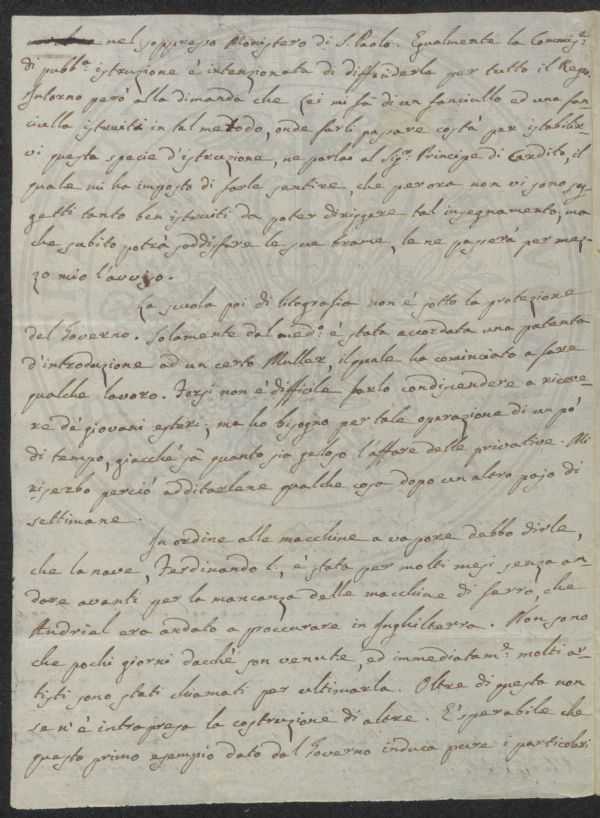 nel soppresso Monistero di S. Paolo. Egualmente la Commise.
di pubba. istruzione è intenzionata di diffonderla per tutto il Regno.
Intorno però alla dimanda che Lei mi fà di un fanciullo ed una fan-
ciulla istruiti in tal metodo, onde farli passare costà per istabilir-
vi questa specie d'istruzione, ne parlai al Sigr. Principe di Cardito, il
quale mi ha imposto di farle sentire, che per ora non vi sono sog-
getti tanto ben istruiti da poter dirigere tal insegnamento, ma
che subito potrà soddisfare le sue brame, le ne passerà per mez-
zo mio l'avviso.
La scuola poi di litografia non è sotto la protezione
del Governo. Solamente dal med.o è stata accordata una patenta
d'introduzione ad un certo Muller, il quale ha cominciato a fare
qualche lavoro. Forsi non è difficile farlo condiscendere a riceve-
re de' giovani esteri; ma ho bisogno per tale operazione di un pò
di tempo, giacchè sà quanto sia geloso l'affare delle privative. Mi
riserbo perciò additarlene qualche cosa dopo un altro pajo di
settimane.
In ordine alle macchine a vapore debbo dirle,
che la nave, Ferdinando I., è stata per molti mesi senza an-
dare avanti per la mancanza delle macchine di ferro, che
Andriel era andato a proccurare in Inghilterra. Non sono
che pochi giorni dacchè son venute, ed immediatam.e molti ar-
tisti sono stati chiamati per ultimarla. Oltre di questa non
se n'è intrapresa la costruzione di altre. È sperabile che
questo primo esempio dato dal Governo induca pure i particolari